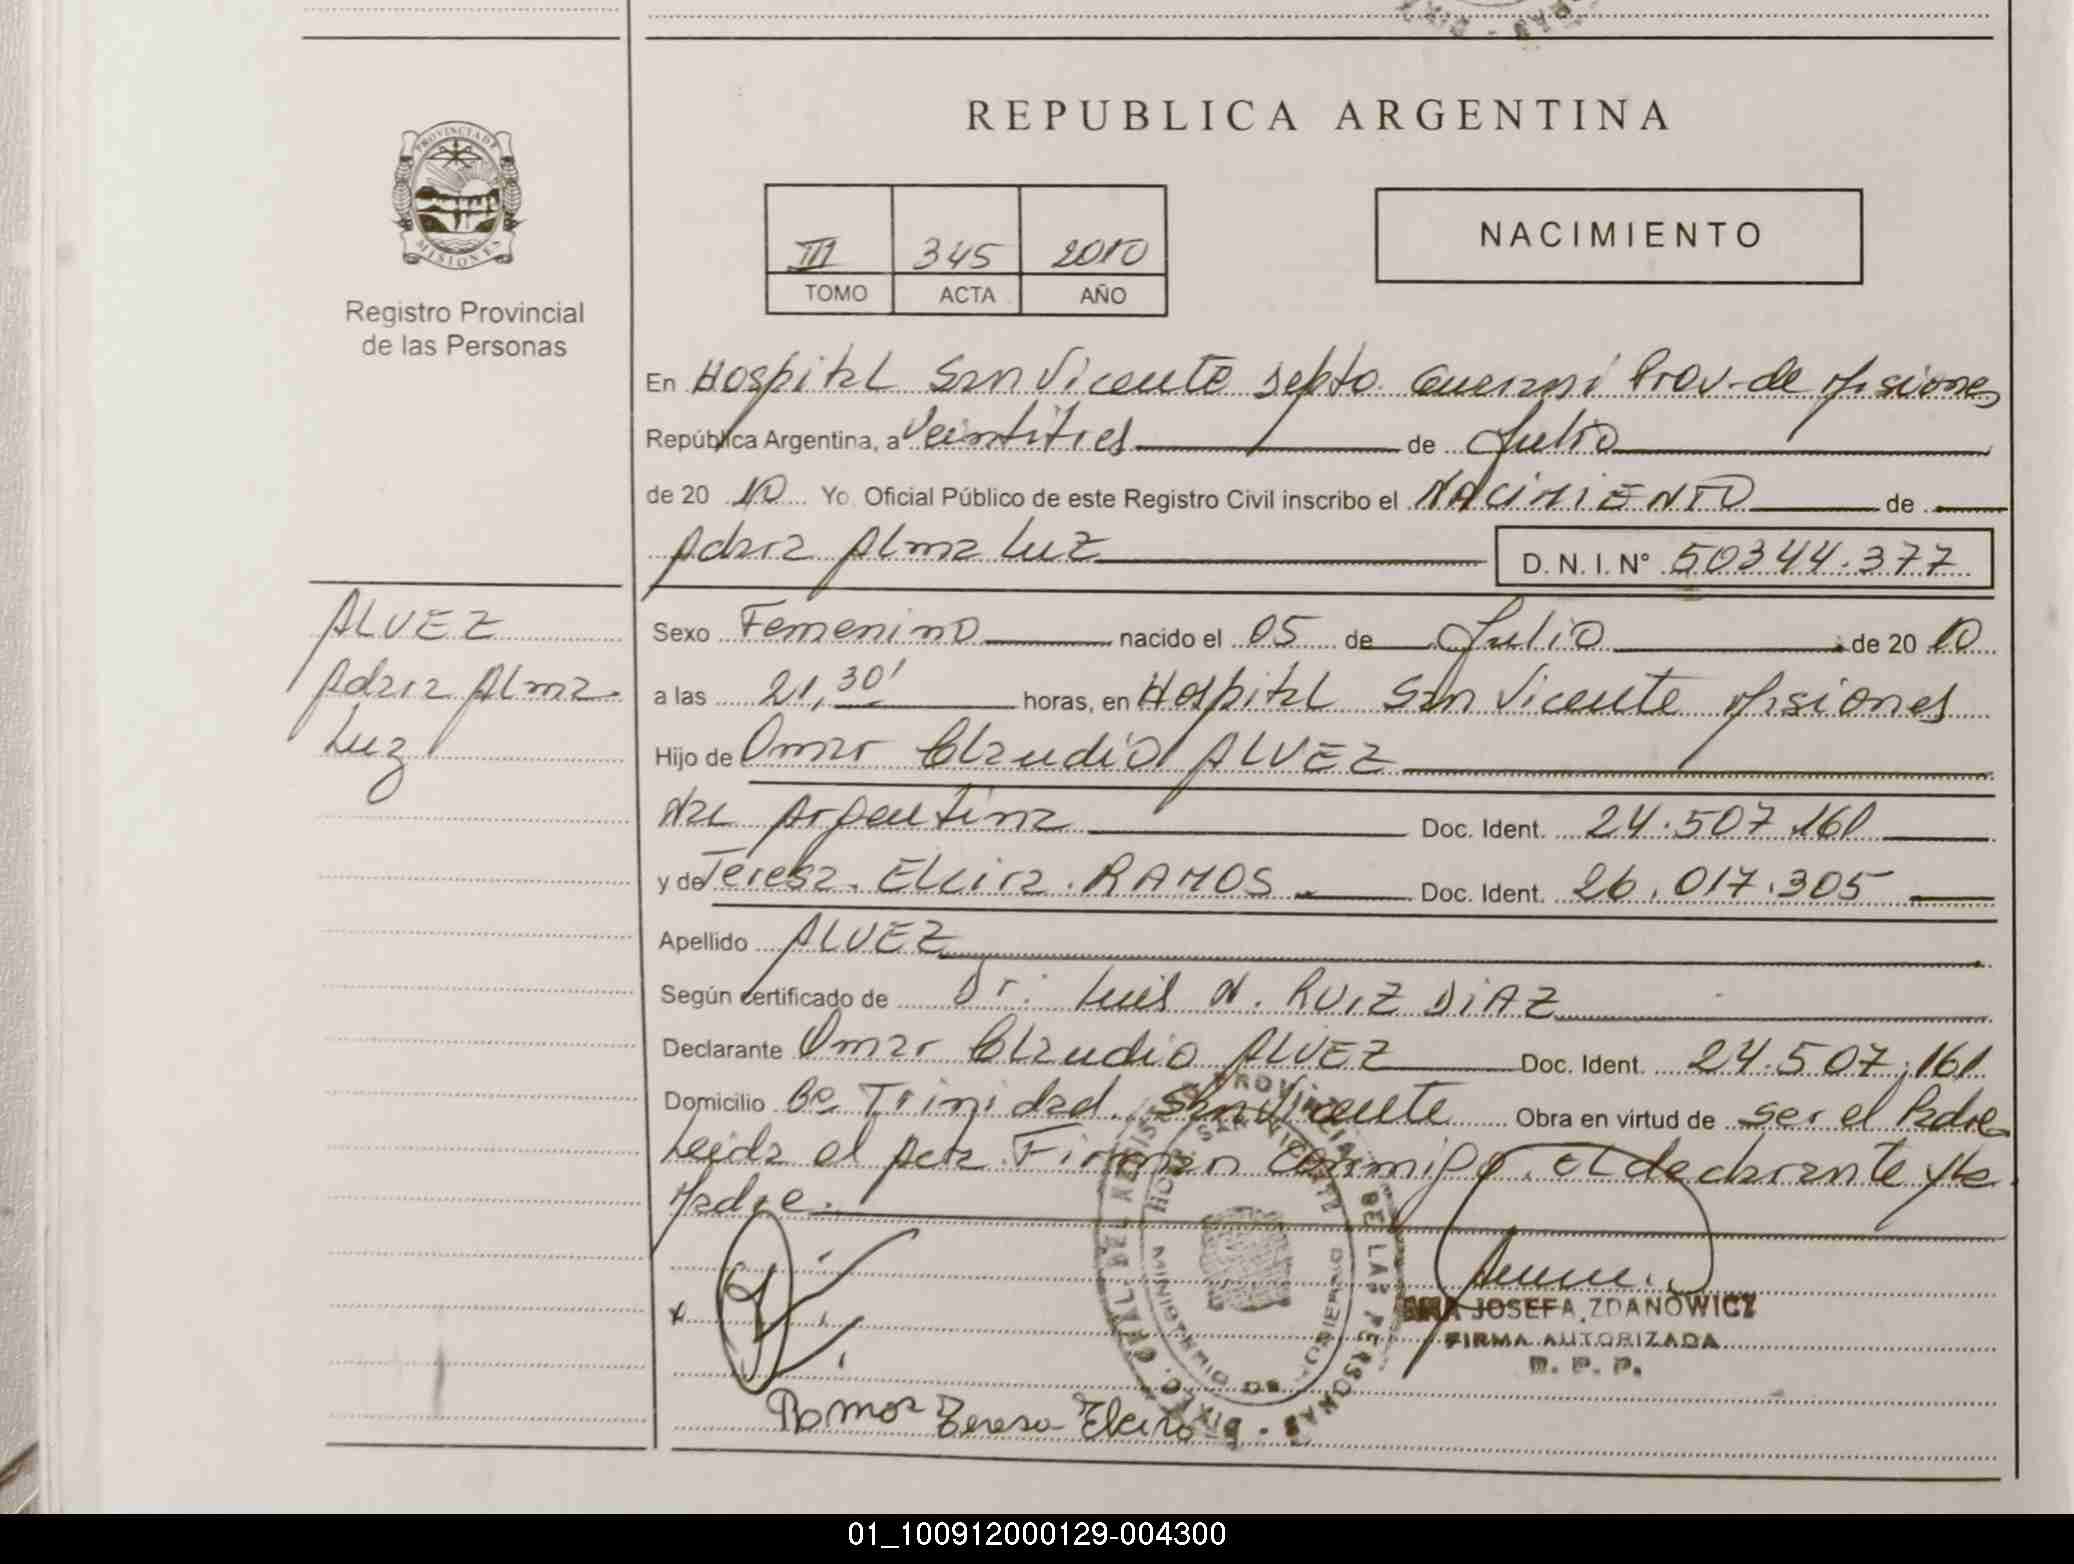 REPUBLICA ARGENTINA
PROVINCIA DE
MISIONES
Registro Provincial
de las Personas
III 345 2010
TOMO ACTA AÑO
NACIMIENTO
En Hospital San Vicente Depto. Guaraní Prov. de Misiones
República Argentina, a Veintitres de Julio
de 20 10 Yo Oficial Público de este Registro Civil inscribo el NACIMIENTO de
Alma Luz D. N. I. Nº 50344.377
ALVEZ
Alma
Luz
Sexo Femenino nacido el 05 de Julio de 20 10
a las 21,30' horas, en Hospital San Vicente Misiones
Hijo de Omar Claudio ALVEZ
Nac Argentina Doc. Ident. 24.507.161
y de Teresa Elcira RAMOS Doc. Ident. 26.017.305
Apellido ALVEZ
Según certificado de Dr. Luis N. RUIZ DIAZ
Declarante Omar Claudio ALVEZ Doc. Ident. 24.507.161
Domicilio Bº Trinidad San Vicente Obra en virtud de ser el Padre
Leida el Acta Firman Conmigo. El declarante y la
Madre.
JOSEFA ZDANOWICZ
FIRMA AUTORIZADA
R. P. P.
Ramos Teresa Elcira
01_100912000129-004300